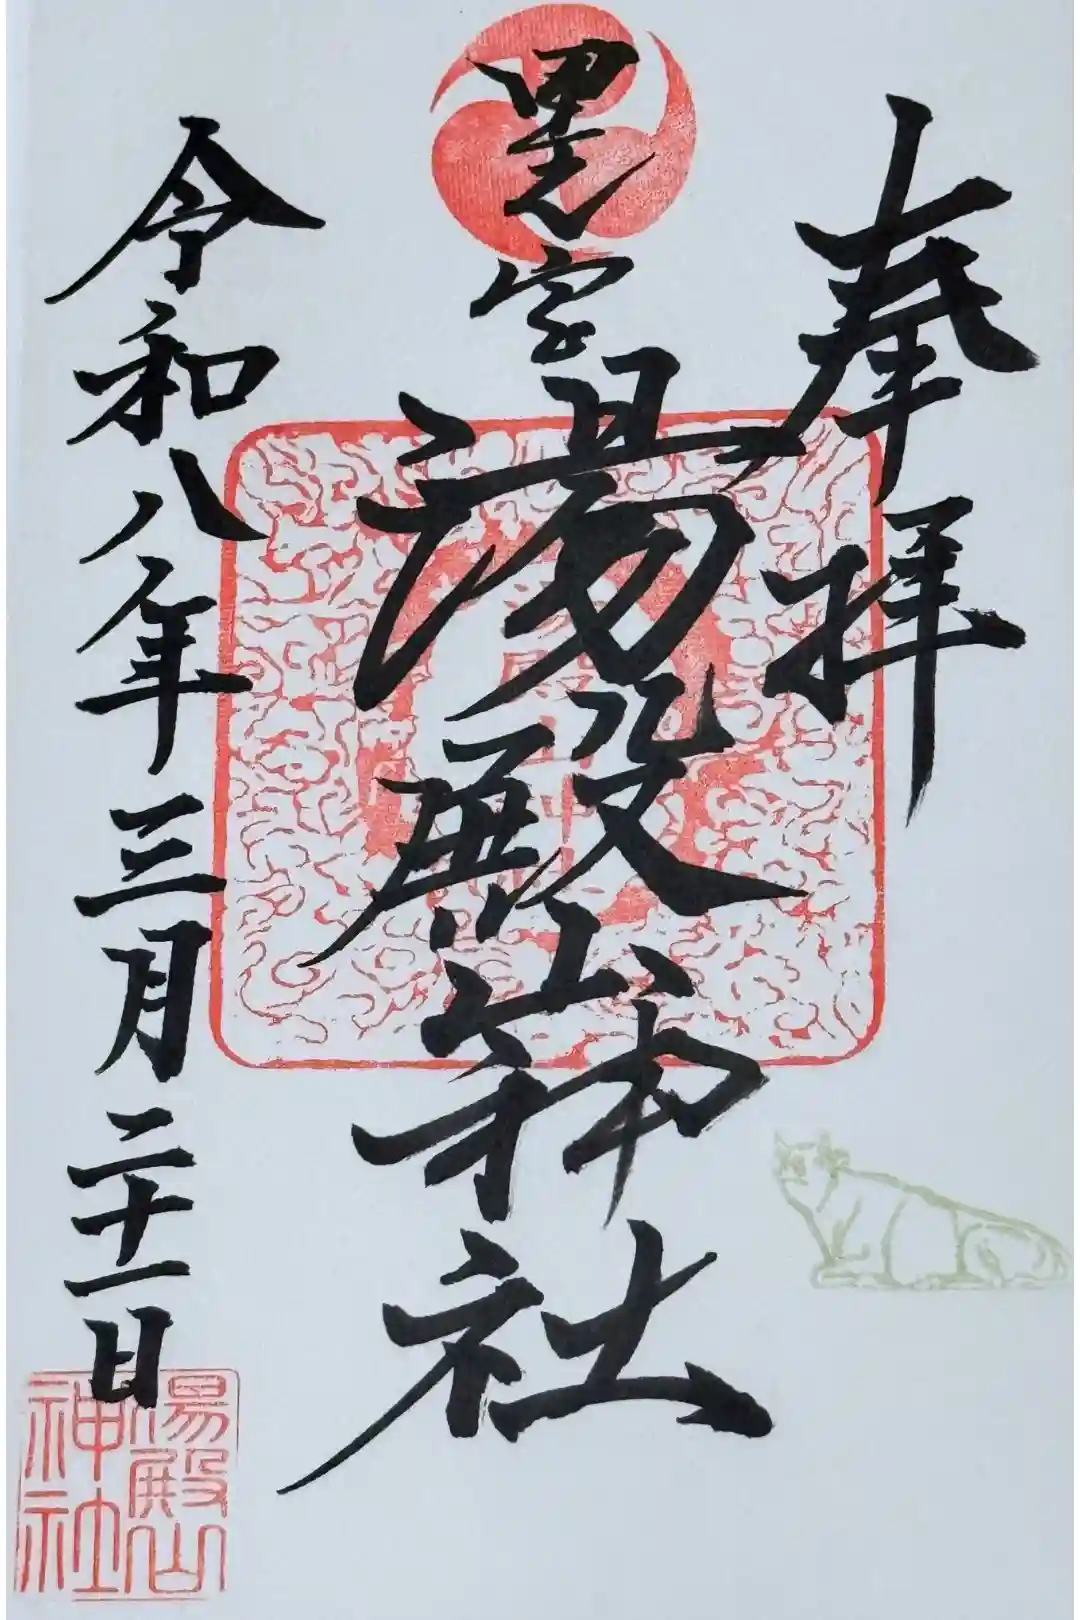 奉拝
里之宮 湯殿山神社
令和八年三月二十一日
湯殿山
神社